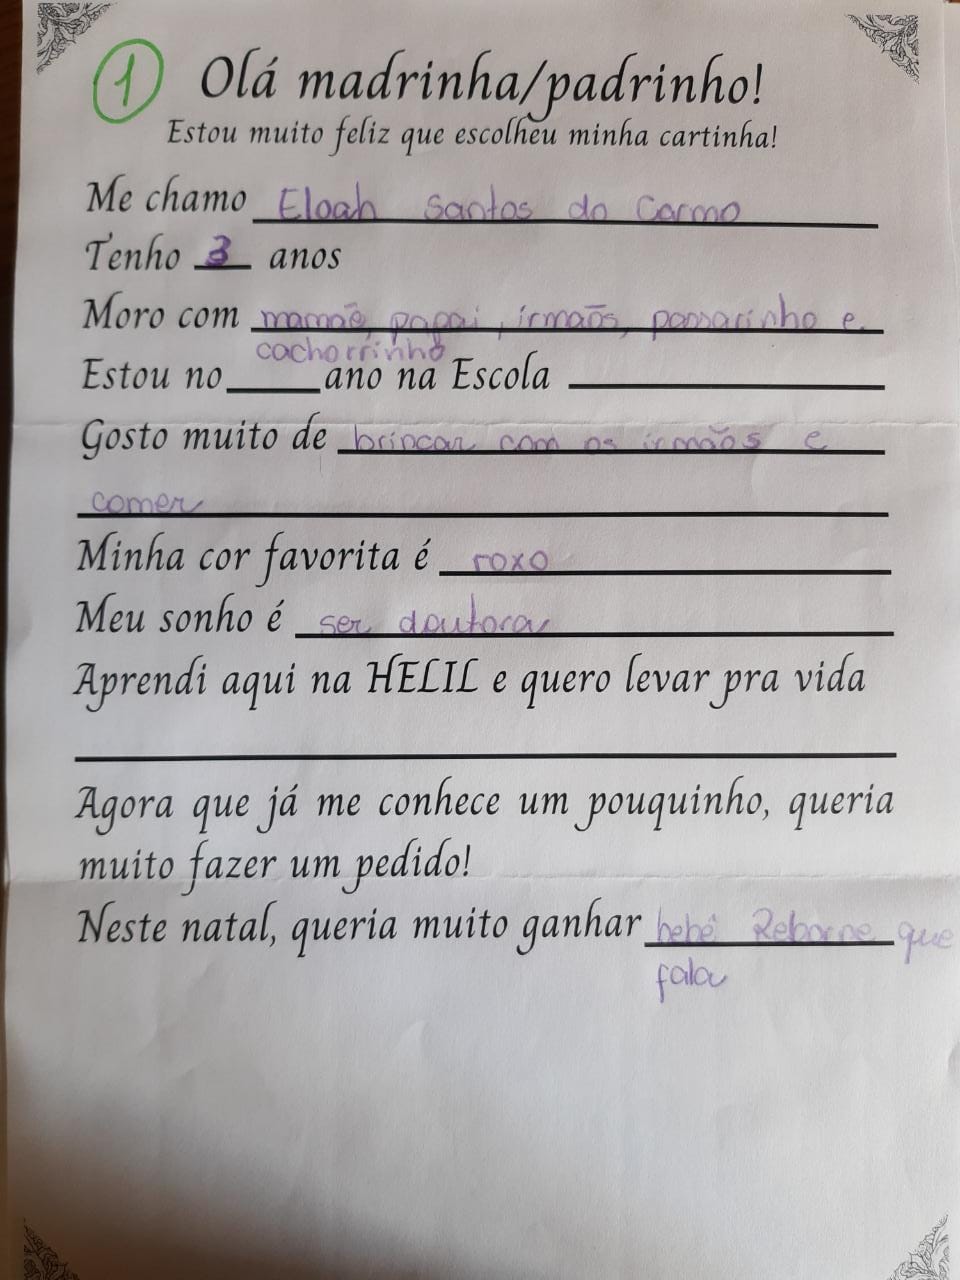 1
Olá madrinha/padrinho!
Estou muito feliz que escolheu minha cartinha!
Me chamo Eloah Santos do Carmo
Tenho 3 anos
Moro com mamãe, papai, irmãos, passarinho e
cachorrinho
Estou no ____ ano na Escola ____
Gosto muito de brincar com os irmãos e
comer
Minha cor favorita é roxo
Meu sonho é ser doutora
Aprendi aqui na HELIL e quero levar pra vida
Agora que já me conhece um pouquinho, queria
muito fazer um pedido!
Neste natal, queria muito ganhar bebê Reborne que
fala